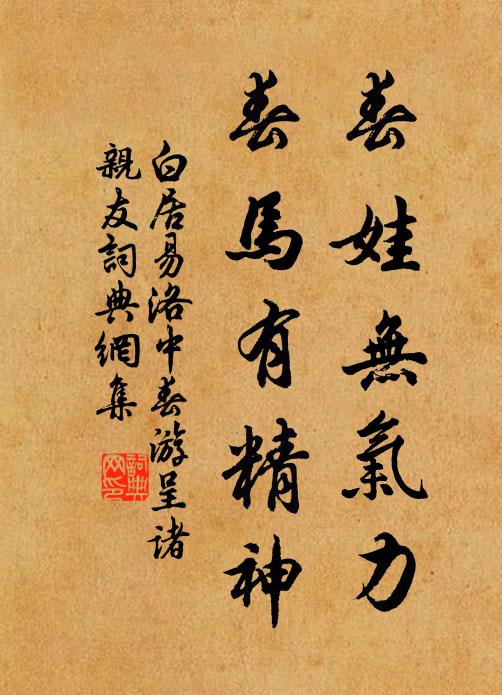 春娃無氣力
春馬有精神
白居易洛中春游呈諸
親友詞典網集
詞典
网印